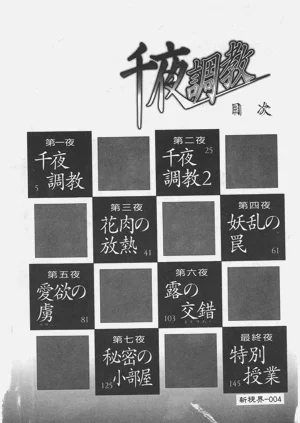 千夜調教
目次
第一夜
千夜
調教
5
第二夜
千夜
25
調教2
第三夜
花肉の
放熱
41
第四夜
妖乱の
罠
61
第五夜
愛欲の
虜
81
第六夜
露の
交錯
103
第七夜
秘密の
小部屋
125
最終夜
特別
授業
145
新視界-004